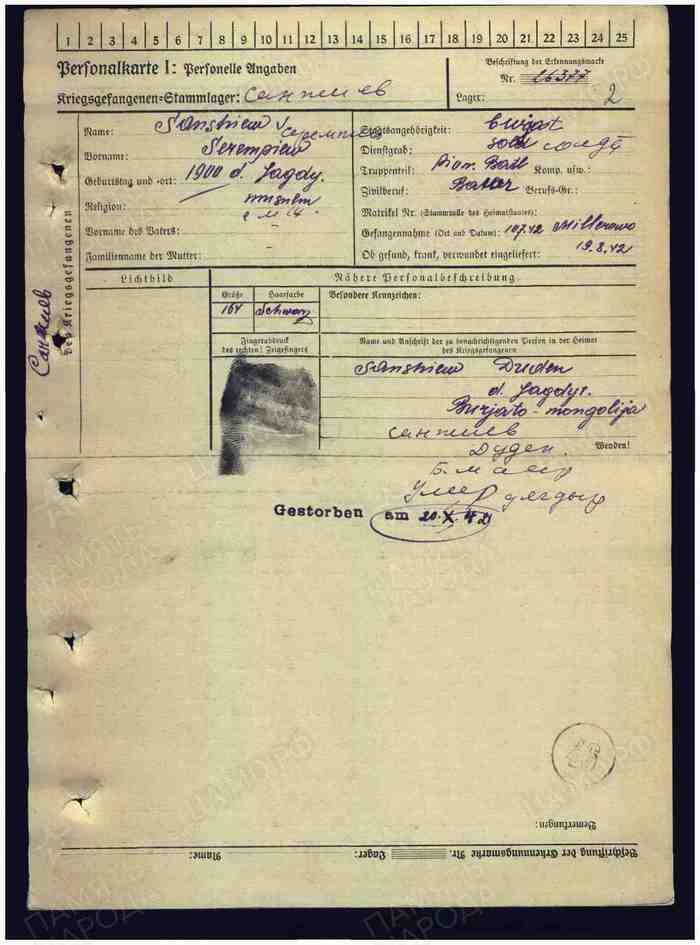 1 2 3 4 5 6 7 8 9 10 11 12 13 14 15 16 17 18 19 20 21 22 23 24 25
Personalkarte I: Personelle Angaben
Beschriftung der Erkennungsmarke
Nr. 26377
Kriegsgefangenen-Stammlager: Санжиев
Lager: 2
des Kriegsgefangenen
Санжиев
Name: Sanshiew
Vorname: Serempiew
Geburtstag und -ort: 1900 d. Jagdy.
Religion:
Vorname des Vaters: -
Familienname der Mutter: -
Staatsangehörigkeit: burjat
Dienstgrad: sold солд
Truppenteil: Pion. Batl Komp. usw.:
Zivilberuf: Berufs-Gr.:
Matrikel Nr. (Stammrolle des Heimatstaates):
Gefangennahme (Ort und Datum): 10.7.42 Millerowo
Ob gesund, krank, verwundet eingeliefert: 19.8.42
Lichtbild
Nähere Personalbeschreibung
Größe
Haarfarbe
Besondere Kennzeichen:
164
Schwarz
Fingerabdruck
des rechten! Zeigefingers
Name und Anschrift der zu benachrichtigenden Person in der Heimat
des Kriegsgefangenen
Sanshiew Duden
d. Jagdy.
Burjato-mongolija
Санжиев
Дуден.
Wenden!
Умер
Gestorben am 20.X.42
Bemerkungen:
Beschriftung der Erkennungsmarke Nr. Lager: Name:
ПАМЯТЬ НАРОДА
ПАМЯТЬ НАРОДА